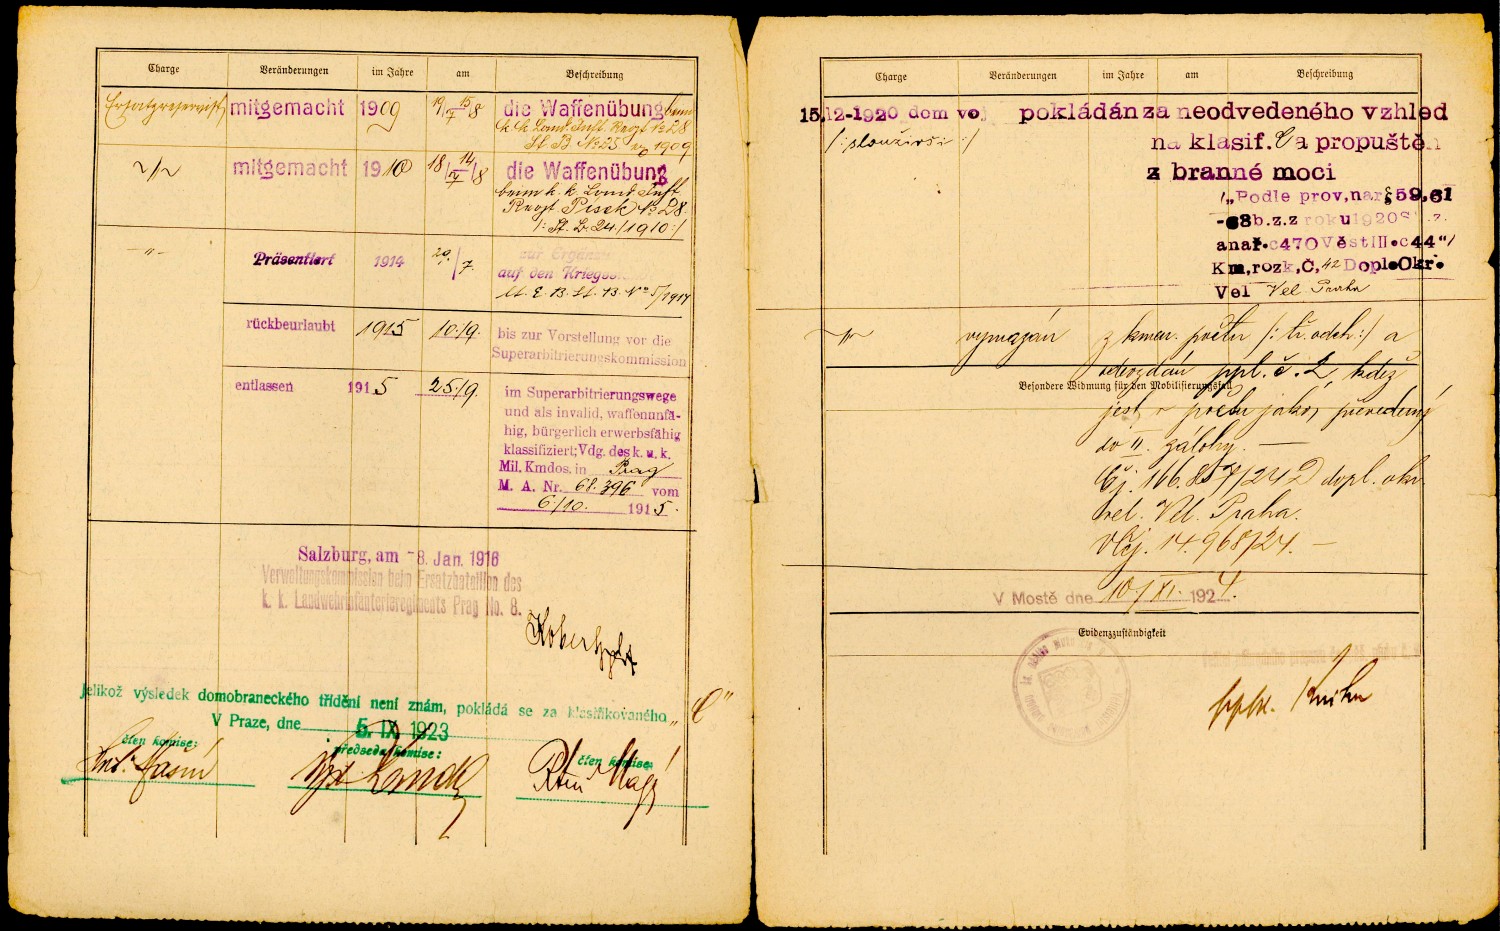 Charge Veränderungen im Jahre am Beschreibung
Ersatzreservist mitgemacht 1909 19/7 15/8 die Waffenübung beim
k. k. Land. Inft. Regt № 28
St. B № 25 1909
mitgemacht 1910 18/7 14/8 die Waffenübung
beim k. k. Land. Inft.
Regt. Pisek № 28.
/: St. B. 24/1910 :/
-"- Präsentiert 1914 29/7. zur
auf den Kriegs
St. № 5/1914
rückbeurlaubt 1915 10./9. bis zur Vorstellung vor die
Superarbitrierungskommission
entlassen 1915 25./9. im Superarbitrierungswege
und als invalid, waffenunfä-
hig, bürgerlich erwerbsfähig
klassifiziert; Vdg. des k. u. k.
Mil. Kmdos. in Prag
M. A. Nr. 68.396 vom
6/10. 1915.
Salzburg, am -8. Jan. 1916
Verwaltungskommission beim Ersatzbataillon des
k. k. Landwehrinfanterieregiments Prag No. 8.
Jelikož výsledek domobraneckého třídění není znám, pokládá se za klasifikovaného „C"
V Praze, dne 5. IX 1923
člen komise: předseda komise: člen komise:
Charge Veränderungen im Jahre am Beschreibung
15.12-1920 dom voj pokládán za neodvedeného vzhled
/: slouživší :/ na klasif. C a propuštěn
z branné moci
/„Podle prov, nař § 59, 61
-68 b.z.z roku 1920 S . z.
a nař. c 470 Věst III. c 44"/
Km, rozk, Č, 42 Dopl. Okr.
Vel Vel Praha
-"- vymazán z kmen. počtu /: tr. odch :/ a
odevzdán ppl. č. 2, kdež
Besondere Widmung für den Mobilisierungsfall
jest v počtu jako převedený
do II. zálohy. —
Čj. 166.857/24 2 dopl. okr.
vel. Vel. Praha.
Včj. 14.968/24. —
V Mostě dne 10./XI. 1924.
Evidenzzuständigkeit